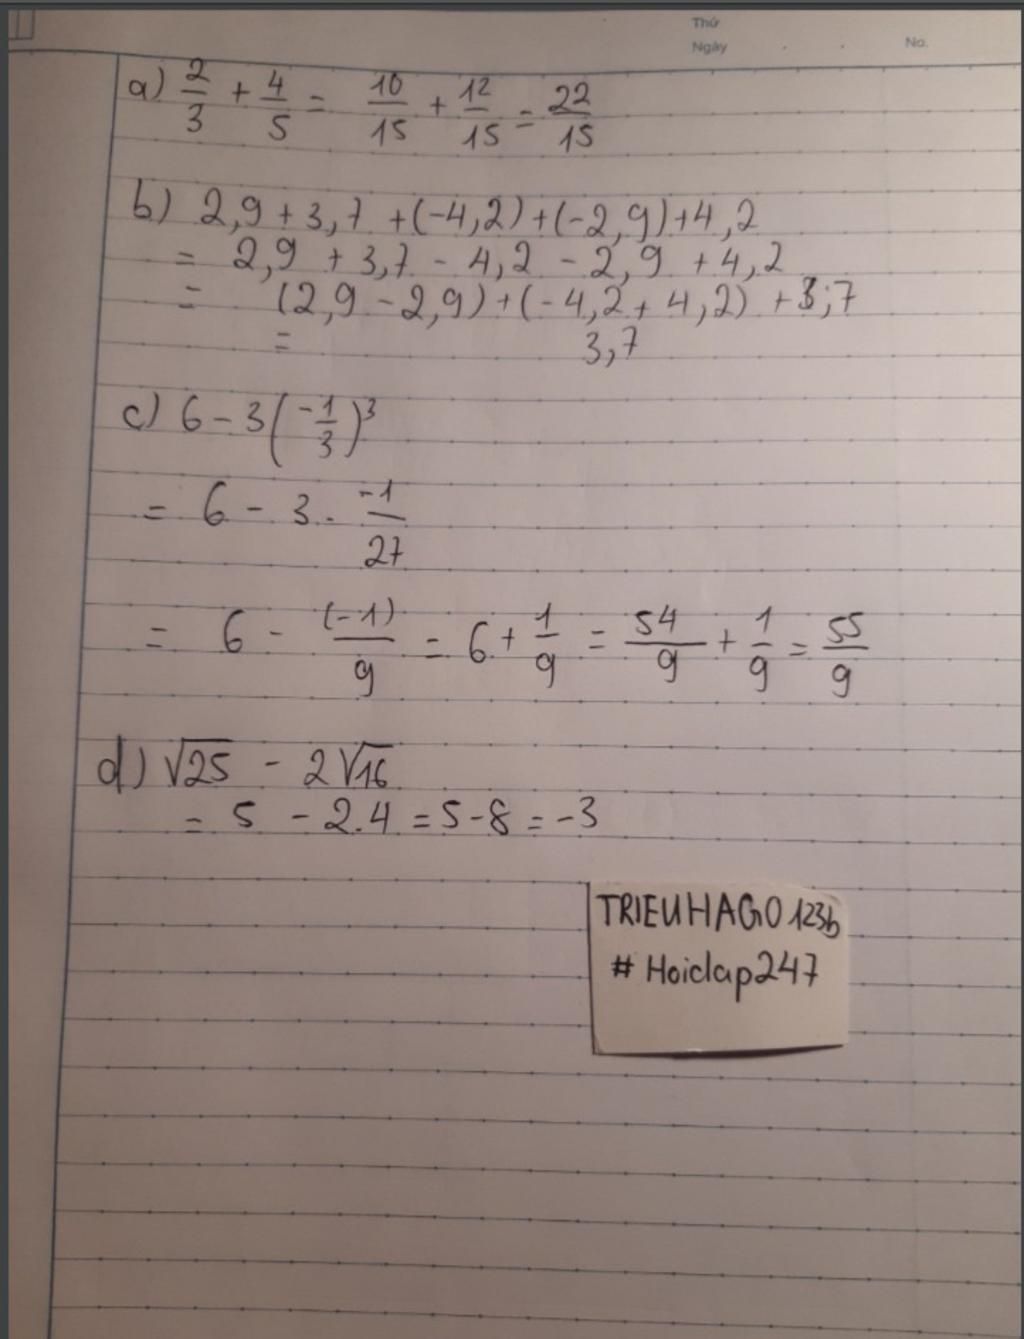 Thứ
Ngày
No.
a) 2/3 + 4/5 = 10/15 + 12/15 = 22/15
b) 2,9 + 3,7 + (-4,2) + (-2,9) + 4,2
= 2,9 + 3,7 - 4,2 - 2,9 + 4,2
= (2,9 - 2,9) + (-4,2 + 4,2) + 3,7
= 3,7
c) 6 - 3(-1/3)³
= 6 - 3. -1/27
= 6 - (-1)/9 = 6 + 1/9 = 54/9 + 1/9 = 55/9
d) √25 - 2√16
= 5 - 2.4 = 5 - 8 = -3
TRIEUHAGO123b
# Hoidap247